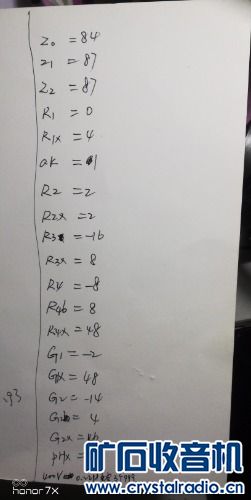 Z0 = 84
Z1 = 87
Z2 = 87
R1 = 0
R1x = 4
ak = 1
R2 = 2
R2x = 2
R3 = -16
R3x = 8
R4 = -8
R4b = 8
R4x = 48
G1 = -2
G1x = 48
G2 = -14
G2b = 4
G2x = 16
PHx =
93
honor 7X
矿石收音机
www.crystalradio.cn